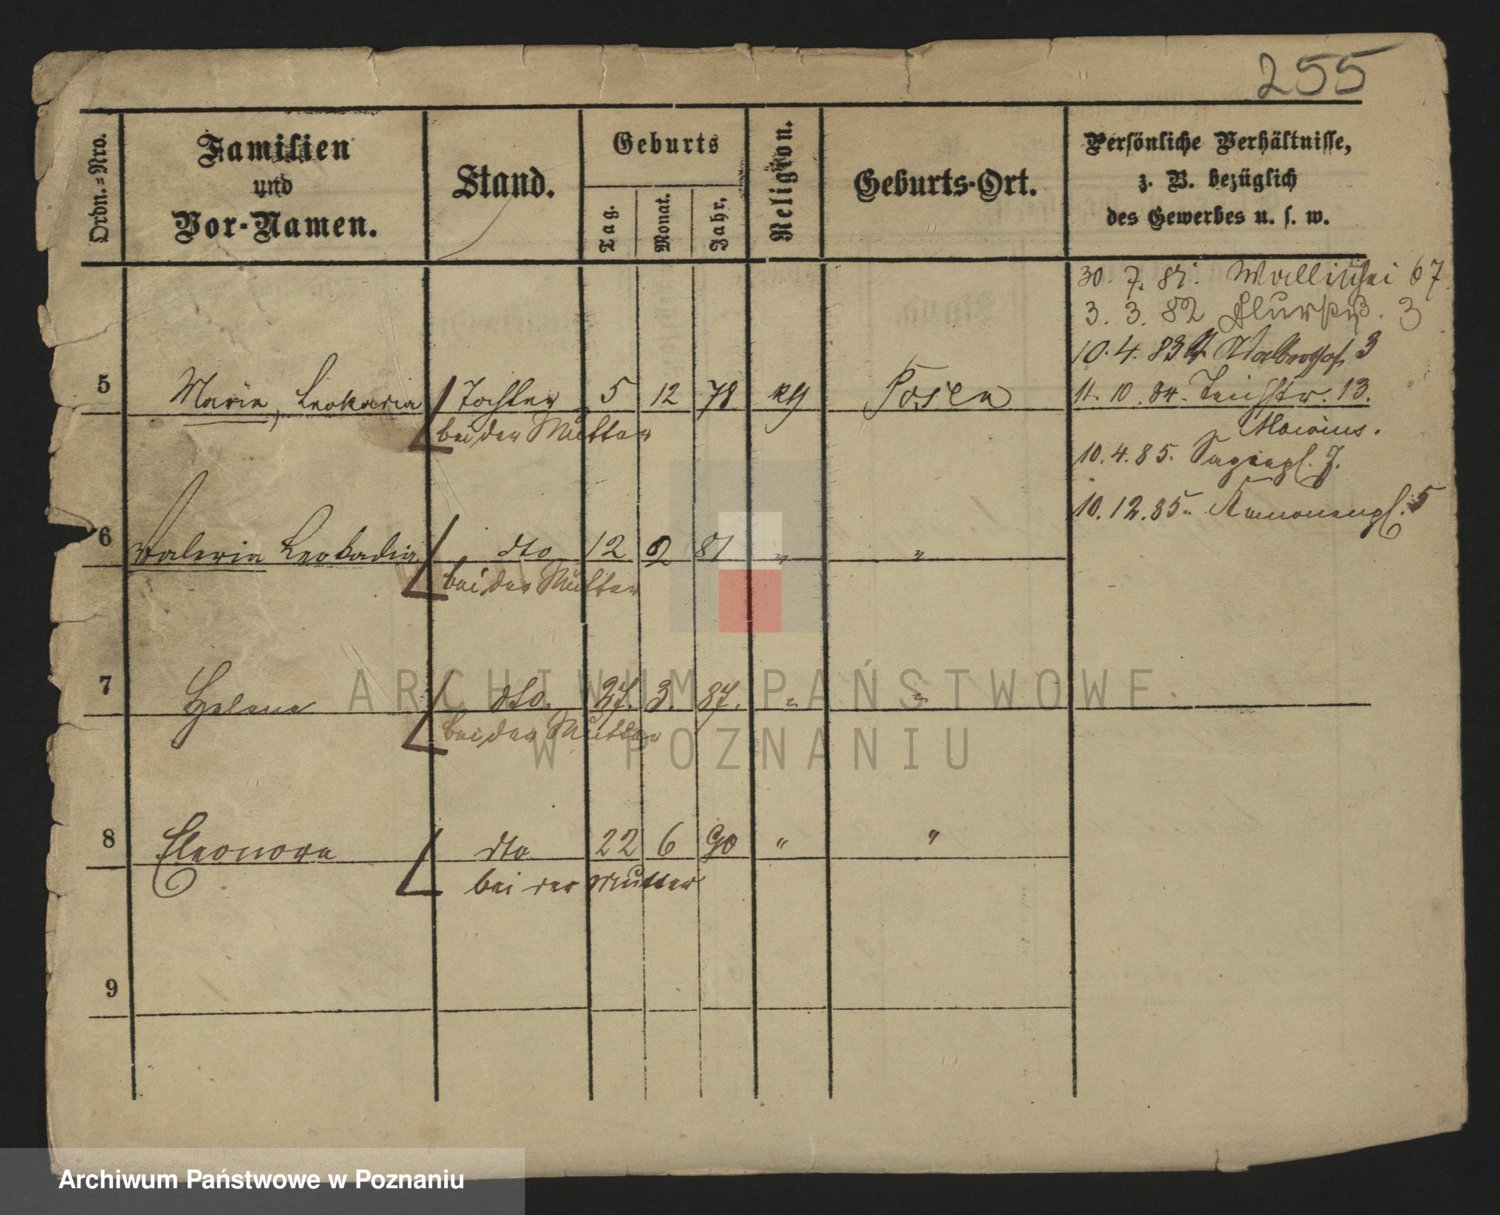 255
Ordn.=Nro.
Familien
und
Vor-Namen.
Stand.
Geburts
Tag.
Monat.
Jahr.
Religion.
Geburts-Ort.
Persönliche Verhältnisse,
z. B. bezüglich
des Gewerbes u. s. w.
30. 7. 81. Wallischei 67.
3. 3. 82 3
10. 4. 83 3
5 Marie, Leokadia Tochter 5 12 78 Posen 11. 10. 84. Teichstr. 13.
bei der Mutter
10. 4. 85. 7.
10. 12. 85. 5
6 Valeria Leokadia dto 12 2 81 " "
bei der Mutter
7 Helene dto. 27. 3. 87. " "
bei der Mutter
8 Eleonora dto 22 6 90 " "
bei der Mutter
9
ARCHIWUM PAŃSTWOWE
W POZNANIU
Archiwum Państwowe w Poznaniu